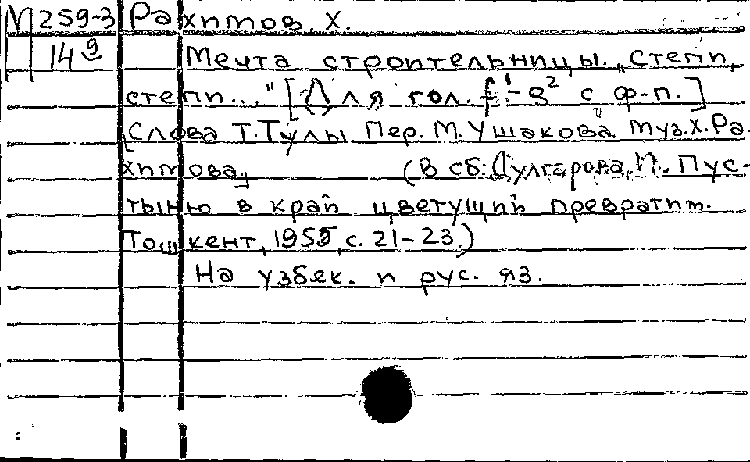 М 259-3 Рахимов. Х.
14 9 Мечта строительницы. „Степи,
степи..." [Для гол. f¹-g² с ф-п.]
[Слова Т.Тулы. Пер. М. Ушакова. Муз. Х. Ра-
химова.] (В сб: Дулгарова, М. Пус-
тыню в край цветущий превратим.
Тошкент, 1955, с. 21-23.)
На узбек. и рус. яз.